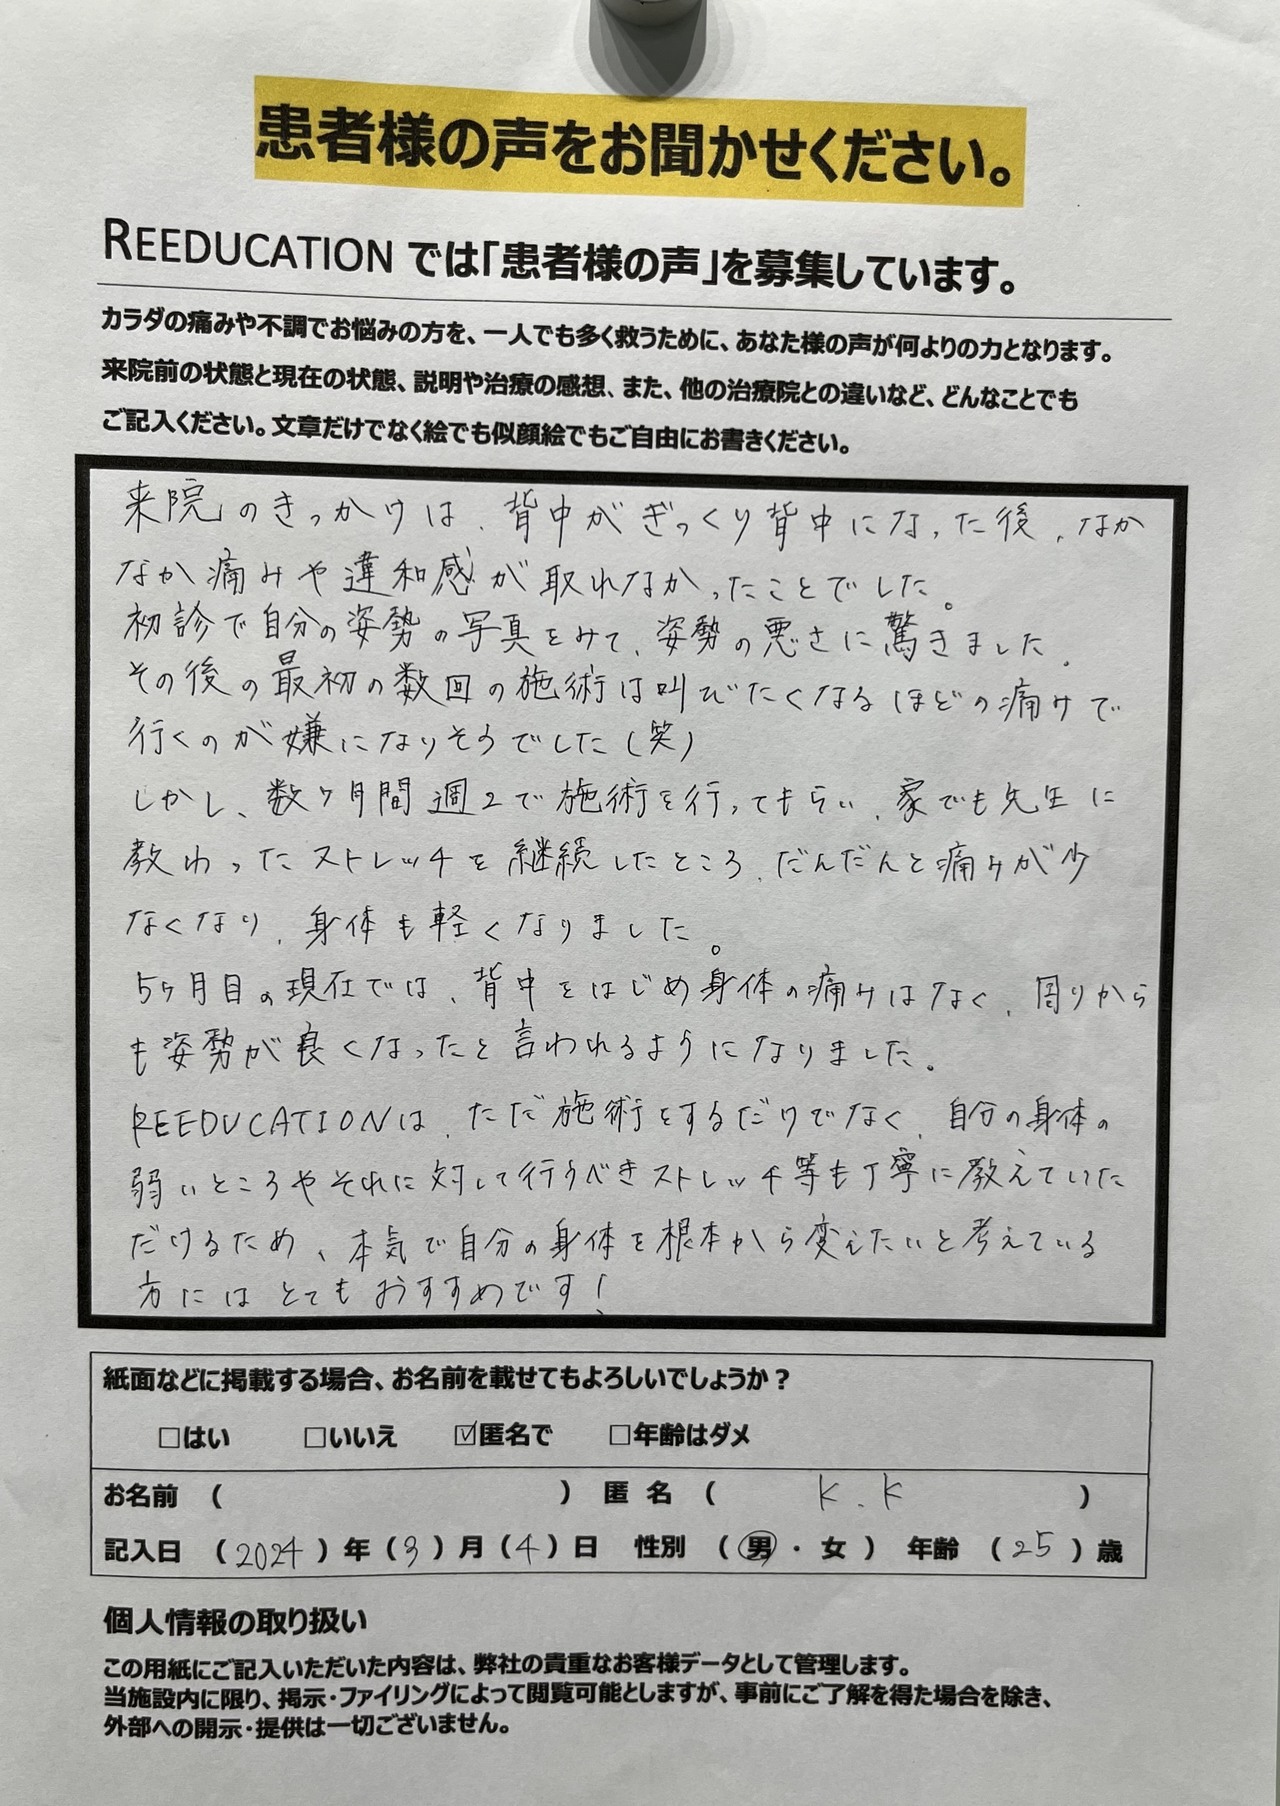 患者様の声をお聞かせください。
REEDUCATION では「患者様の声」を募集しています。
カラダの痛みや不調でお悩みの方を、一人でも多く救うために、あなた様の声が何よりの力となります。
来院前の状態と現在の状態、説明や治療の感想、また、他の治療院との違いなど、どんなことでも
ご記入ください。文章だけでなく絵でも似顔絵でもご自由にお書きください。
来院のきっかけは、背中がぎっくり背中になった後、なか
なか痛みや違和感が取れなかったことでした。
初診で自分の姿勢の写真をみて、姿勢の悪さに驚きました。
その後の最初の数回の施術は叫びたくなるほどの痛みで
行くのが嫌になりそうでした(笑)
しかし、数ヶ月間週2で施術を行ってもらい、家でも先生に
教わったストレッチを継続したところ、だんだんと痛みが少
なくなり、身体も軽くなりました。
5ヶ月目の現在では、背中をはじめ身体の痛みはなく、周りから
も姿勢が良くなったと言われるようになりました。
REEDUCATIONは、ただ施術をするだけでなく、自分の身体の
弱いところやそれに対して行うべきストレッチ等も丁寧に教えていた
だけるため、本気で自分の身体を根本から変えたいと考えている
方にはとてもおすすめです!
紙面などに掲載する場合、お名前を載せてもよろしいでしょうか?
□はい □いいえ ☑匿名で □年齢はダメ
お名前 ( ) 匿 名 ( K.K )
記入日 (2024) 年 (3) 月 (4) 日 性別 (男・女) 年齢 (25) 歳
個人情報の取り扱い
この用紙にご記入いただいた内容は、弊社の貴重なお客様データとして管理します。
当施設内に限り、掲示・ファイリングによって閲覧可能としますが、事前にご了解を得た場合を除き、
外部への開示・提供は一切ございません。